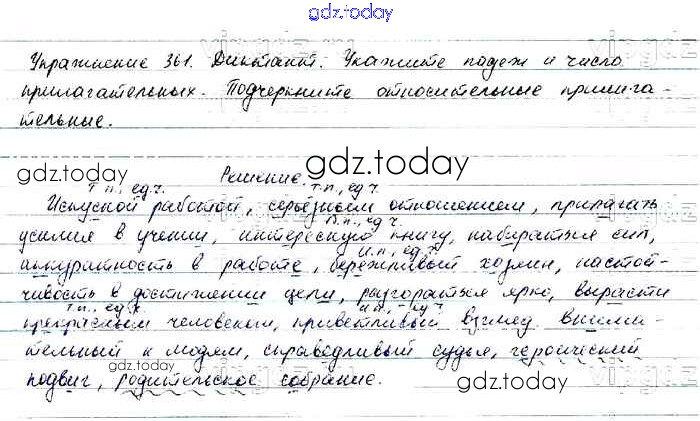 gdz.today
Упражнение 361. Диктант. Укажите падеж и число
прилагательных. Подчеркните относительные прилага-
тельные.
gdz.today
Решение.
gdz.today
Т.п., ед.ч. Т.п., ед.ч.
Искусной работой, серьёзным отношением, прилагать
В.п., ед.ч.
усилия в учении, интересную книгу, набираться сил,
И.п., ед.ч.
аккуратность в работе, бережливый хозяин, настой-
чивость в достижении цели, разгораться ярко, вырасти
Т.п., ед.ч. И.п., ед.ч.
прекрасным человеком, приветливый взгляд внима-
тельный к людям, справедливый судья, героический
подвиг, родительское собрание.
gdz.today
gdz.today